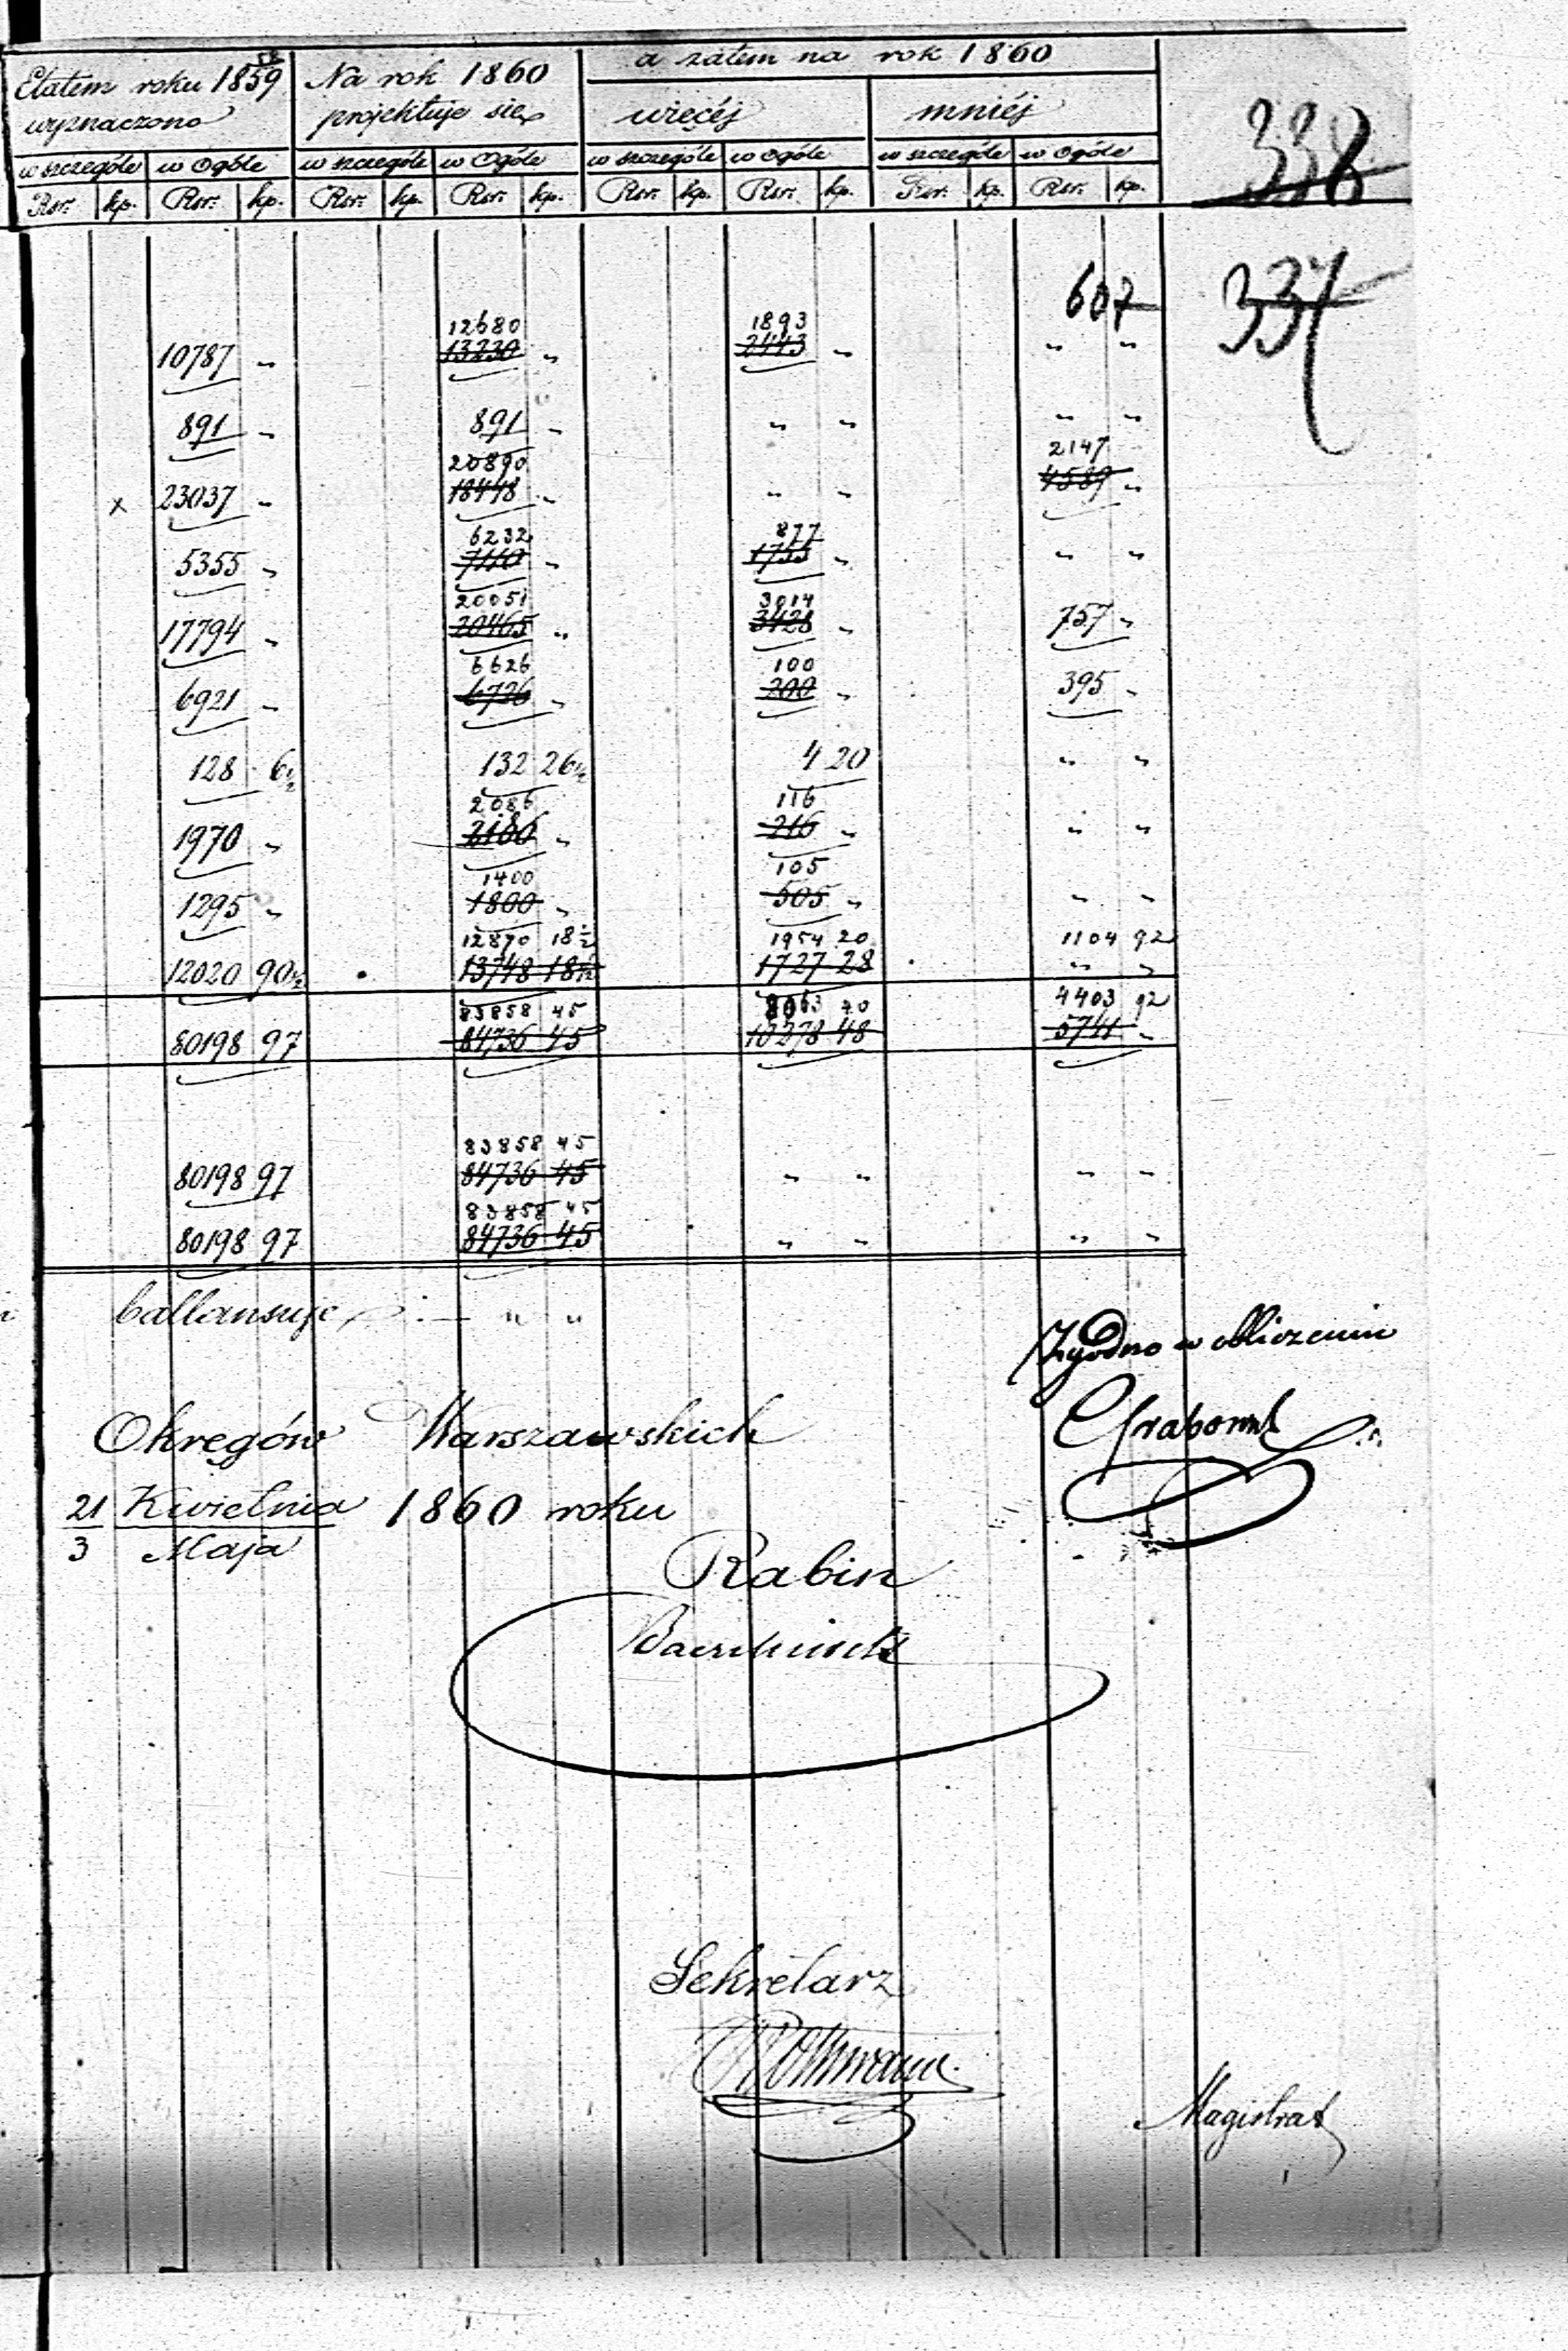 Etatem roku 1859 Na rok 1860 a zatem na rok 1860
wyznaczono projektuje się więcéj mniéj
w szczególe w Ogóle w szczególe w Ogóle w szczególe w Ogóle w szczególe w Ogóle
Rsr. kp. Rsr. kp. Rsr. kp. Rsr. kp. Rsr. kp. Rsr. kp. Rsr. kp. Rsr. kp.
338
337
607
12680 1893
10787 " 13230 " 2443 " " "
891 " 891 " " " " "
20890 2147
x 23037 " 18448 " " " 4589 "
6232 877
5355 " 7110 " 1755 " " "
20051 3014
17794 " 20465 " 3428 " 757 "
6626 100
6921 " 6726 " 200 " 395 "
128 6½ 132 26½ 4 20 " "
2086 116
1970 " 2186 " 216 " " "
1400 105
1295 " 1800 " 505 " " "
12870 18½ 1954 20 1104 92
12020 90½ 13748 18½ 1727 28 " "
83858 45 8063 40 4403 92
80198 97 84736 45 10278 48 5741 "
83858 45
80198 97 84736 45 " " " "
83858 45
80198 97 84736 45 " " " "
ballansuje " "
Zgodno w obliczeniu
Okręgów Warszawskich
21 Kwietnia 1860 roku
3 Maja
Rabin
Sekretarz
Magistrat